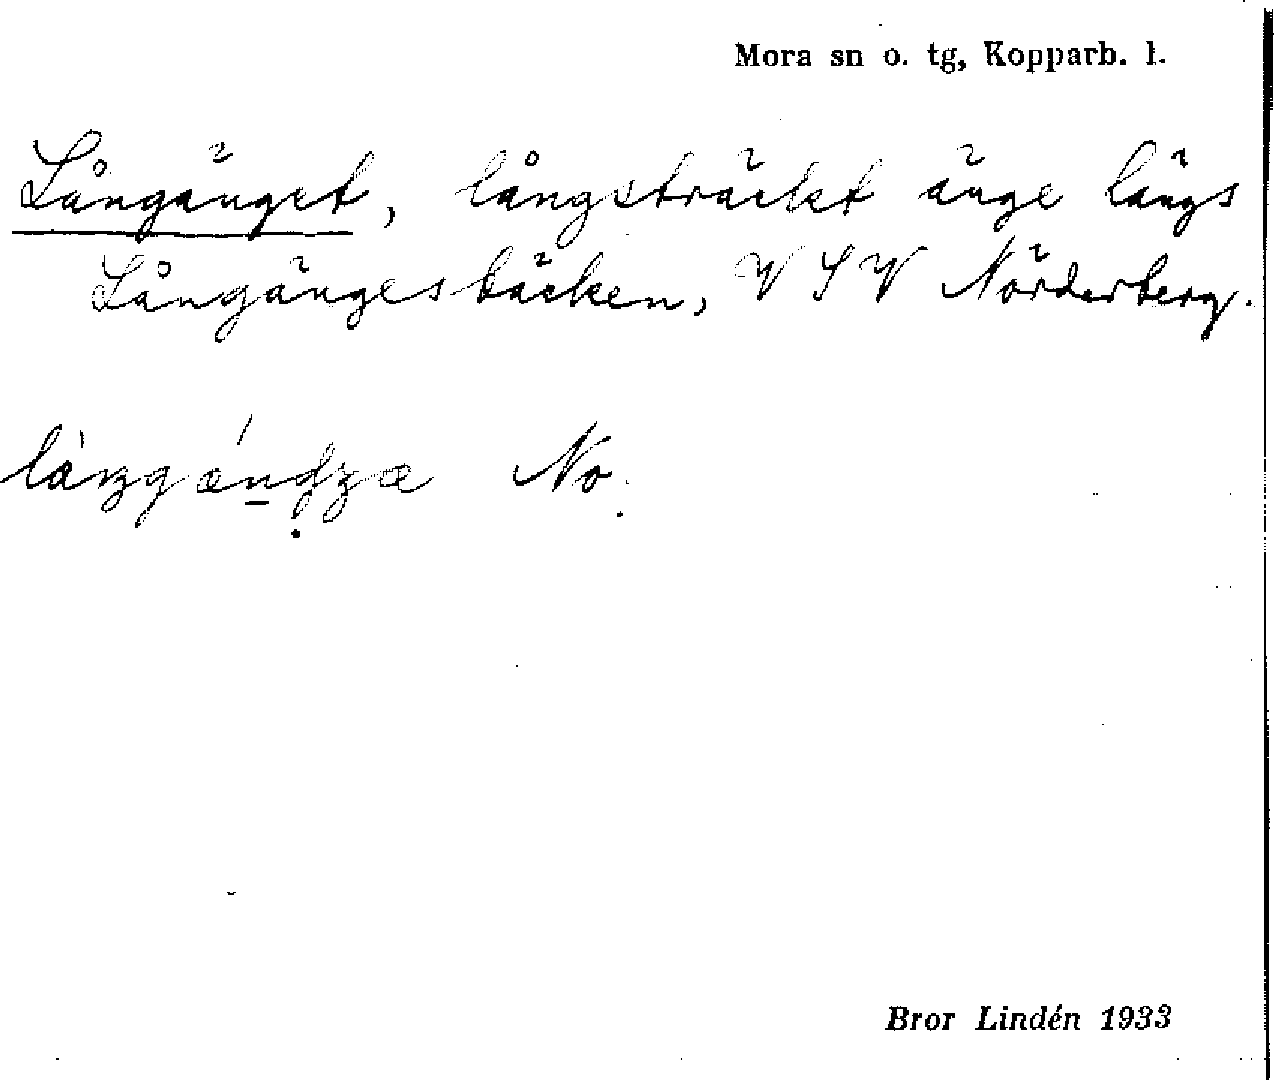 Mora sn o. tg, Kopparb. l.
Långänget, långsträckt änge längs
Långängesbäcken, VSV Nörderberg.
No.
Bror Lindén 1933